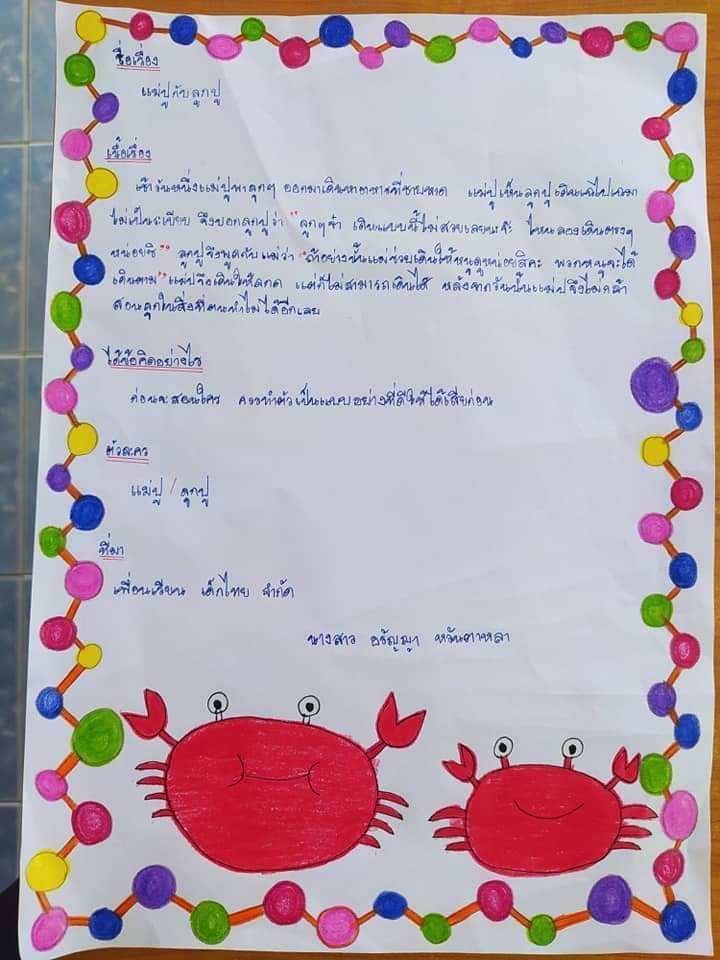 ชื่อเรื่อง
แม่ปูกับลูกปู
เนื้อเรื่อง
เช้าวันหนึ่งแม่ปูพาลูกๆ ออกมาเดินหาอาหารที่ชายหาด แม่ปูเห็นลูกปูเดินเฉไปเฉมา
ไม่เป็นระเบียบ จึงบอกลูกปูว่า "ลูกๆจ๋า เดินแบบนี้ไม่สวยเลยนะจ๊ะ ไหนลองเดินตรงๆ
หน่อยซิ" ลูกปูจึงพูดกับแม่ว่า "ถ้าอย่างนั้นแม่ช่วยเดินให้หนูดูหน่อยสิคะ พวกหนูจะได้
เดินตาม" แม่ปูจึงเดินให้ลูกดู แต่ก็ไม่สามารถเดินได้ หลังจากวันนั้นแม่ปูจึงไม่กล้า
สอนลูกในสิ่งที่ตนทำไม่ได้อีกเลย
ได้ข้อคิดอย่างไร
ก่อนจะสอนใคร ควรทำตัวเป็นแบบอย่างที่ดีให้ได้เสียก่อน
ตัวละคร
แม่ปู / ลูกปู
ที่มา
เพื่อนเรียน เด็กไทย จำกัด
นางสาว อรัญญา หวันตาหลา